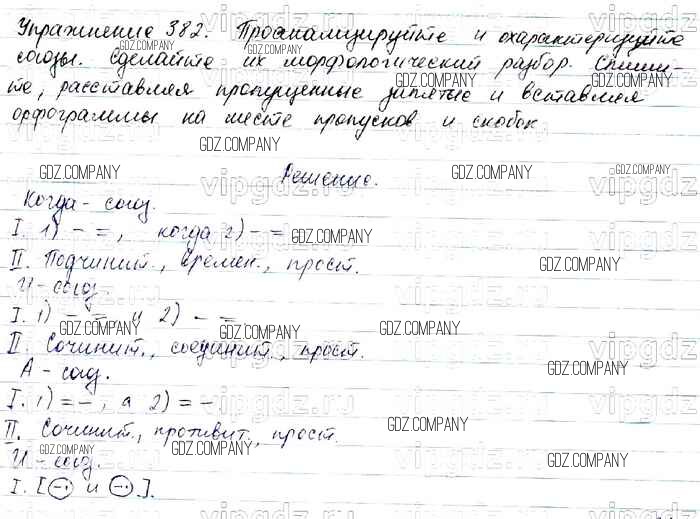 Упражнение 382. Проанализируйте и охарактеризуйте
союзы. Сделайте их морфологический разбор. Спиши-
те, расставляя пропущенные запятые и вставляя
орфограммы на месте пропусков и скобок
Решение.
Когда - союз.
I. 1) - =, когда 2) - =
II. Подчинит., времен., прост.
И - союз.
I. 1) - =, и 2) - =
II. Сочинит., соединит., прост.
А - союз.
I. 1) = -, а 2) = -
II. Сочинит., противит., прост.
И - союз.
I. [(–·) и (–·)].
GDZ.COMPANY
vipgdz.ru